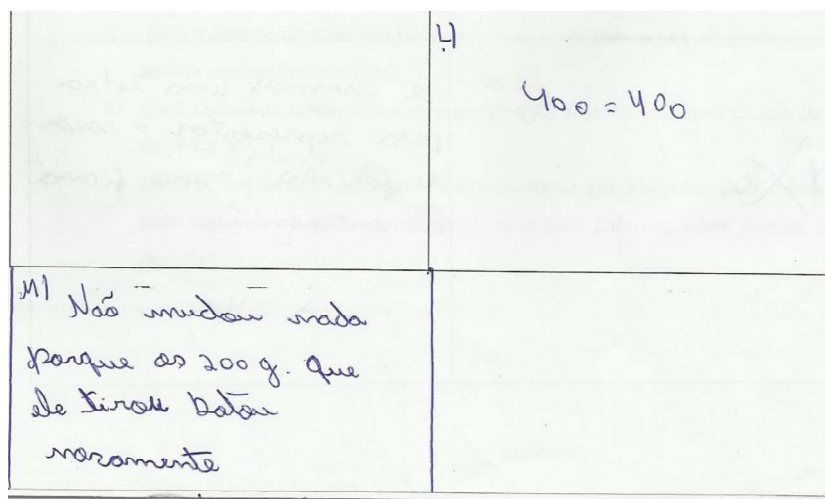 4
400 = 400
M) Não mudou nada
porque os 200 g. que
ele tirou botou
novamente